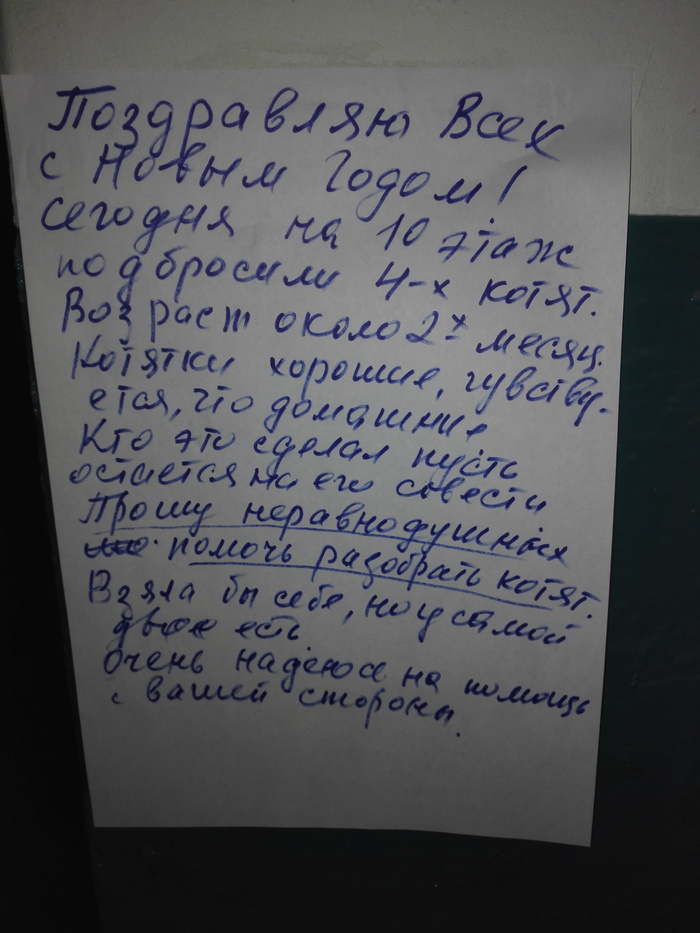 Поздравляю Всех
с Новым Годом!
Сегодня на 10 этаж
подбросили 4-х котят.
Возраст около 2х месяц.
Котятки хорошие, чувству-
ется, что домашние
Кто это сделал пусть
остается на его совести
Прошу неравнодушных
помочь разобрать котят.
Взяла бы себе, но у самой
двое есть
Очень надеюсь на помощь
с вашей стороны.